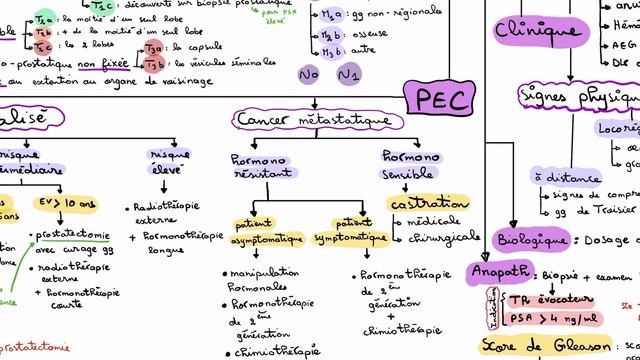 T2c : découvert sur biopsie prostatique
→ pour PSA élevé
T2a : la moitié d'un seul lobe
T2b : + de la moitié d'un seul lobe
T2c : les 2 lobes
a-prostatique non fixée
T3a : la capsule
T3b : les vésicules séminales
ou extension au organe de voisinage
M1a : gg non-régionales
M1b : osseuse
M1c : autre
N0 N1
PEC
alisé
risque
élevé
• Radiothérapie
externe
+ hormonothérapie
longue
EV > 10 ans
• prostatectomie
avec curage gg
• radiothérapie
externe
+ hormonothérapie
courte
prostatectomie
Cancer métastatique
hormono
résistant
patient
asymptomatique
• manipulation
hormonales
• hormonothérapie
de 2ème
génération
• chimiothérapie
patient
symptomatique
• hormonothérapie
de 2ème
génération
+
chimiothérapie
hormono
sensible
castration
médicale
chirurgicale
Clinique
Signes physiqu
Locoré
à distance
signes de compre
gg de Troisier
Biologique : Dosage
Anapath : Biopsie + examen
Indication
TR évocateur
PSA > 4 ng/ml
Score de Gleason : sco